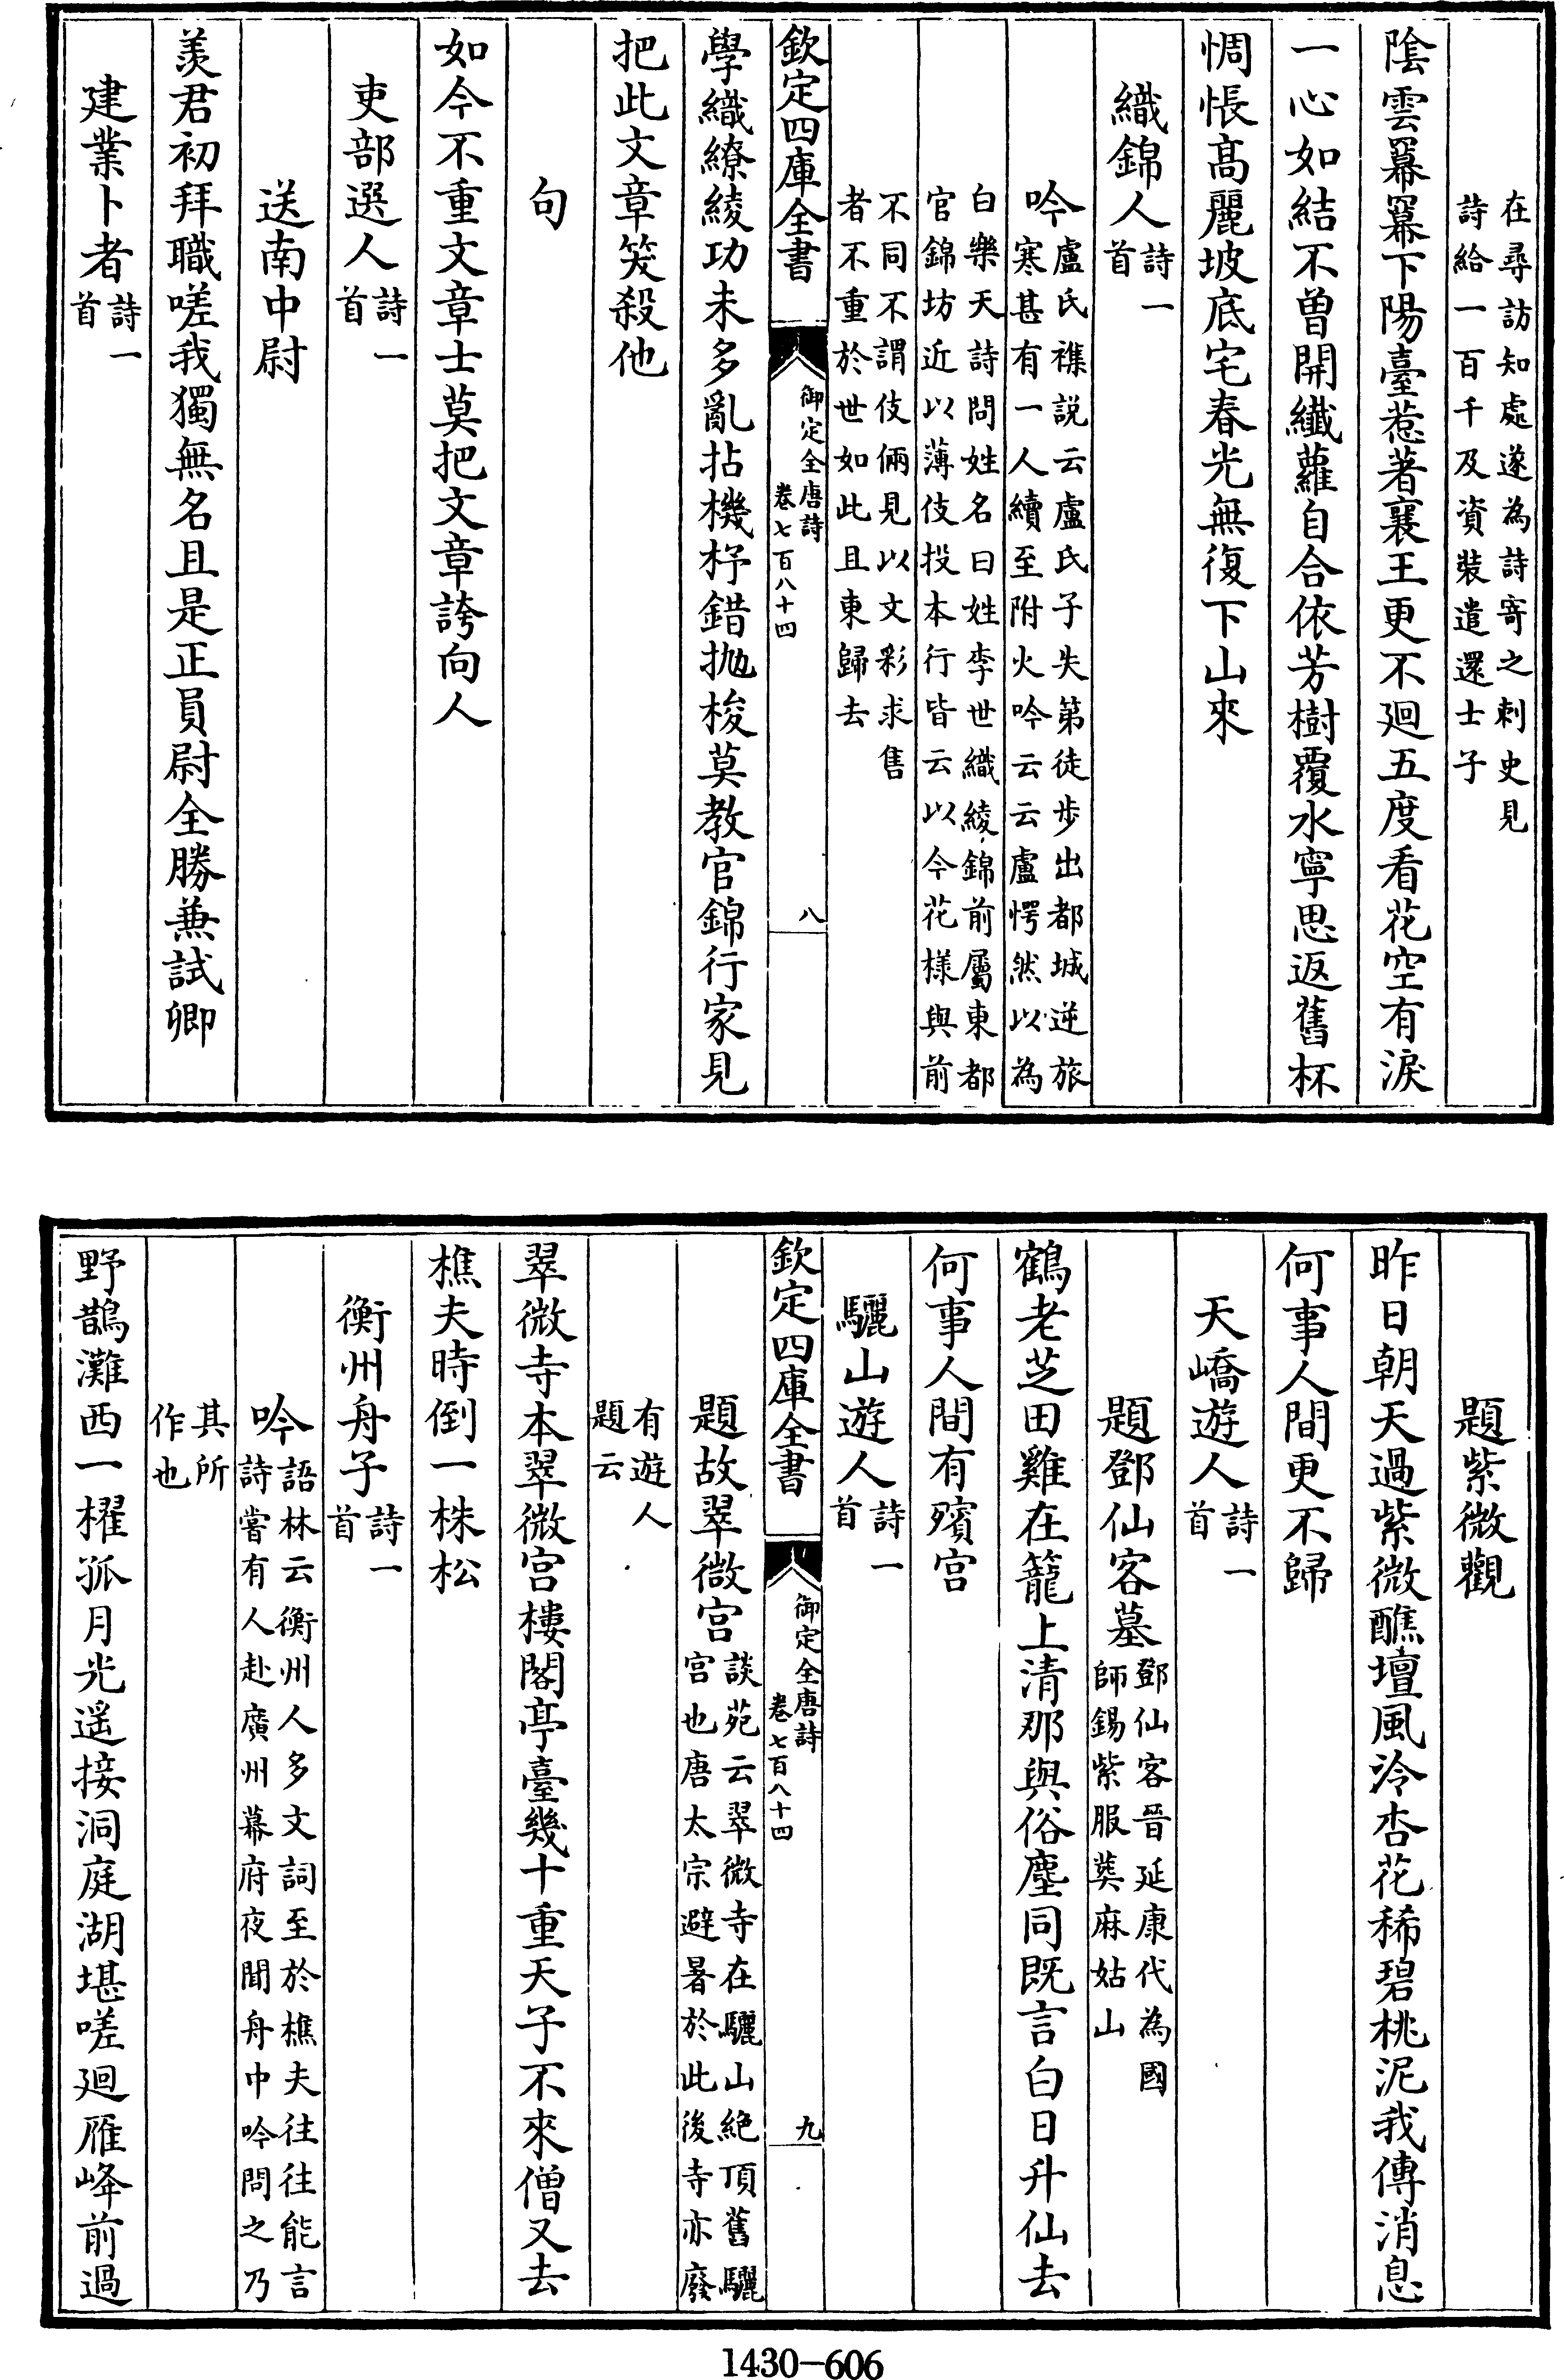 在尋訪知處遂為詩寄之刺史見
詩給一百千及資裝遣還士子
陰雲羃羃下陽臺惹著襄王更不迴五度看花空有淚
一心如結不曽開纖蘿自合依芳樹覆水寧思返舊杯
惆悵髙麗坡底宅春光無復下山來
織錦人詩一首
吟盧氏襍説云盧氏子失第徒步出都城逆旅
寒甚有一人續至附火吟云云盧愕然以為
白樂天詩問姓名曰姓李世織綾錦前屬東都
官錦坊近以薄伎投本行皆云以今花様與前
不同不謂伎倆見以文彩求售
者不重於世如此且東歸去
欽定四庫全書
御定全唐詩
卷七百八十四
八
學織繚綾功未多亂拈機杼錯抛梭莫教官錦行家見
把此文章笑殺他
句
如今不重文章士莫把文章誇向人
吏部選人詩一首
送南中尉
羨君初拜職嗟我獨無名且是正員尉全勝兼試卿
建業卜者詩一首
題紫微觀
昨日朝天過紫微醮壇風冷杏花稀碧桃泥我傳消息
何事人間更不歸
天嶠遊人詩一首
題鄧仙客墓鄧仙客晉延康代為國
師錫紫服葬麻姑山
鶴老芝田雞在籠上清那與俗塵同既言白日升仙去
何事人間有殯宫
驪山遊人詩一首
欽定四庫全書
御定全唐詩
卷七百八十四
九
題故翠微宫談苑云翠微寺在驪山絶頂舊驪
宫也唐太宗避暑於此後寺亦廢
有遊人
題云
翠微寺本翠微宫樓閣亭臺幾十重天子不來僧又去
樵夫時倒一株松
衡州舟子詩一首
吟語林云衡州人多文詞至於樵夫往往能言
詩嘗有人赴廣州幕府夜聞舟中吟問之乃
其所
作也
野鵲灘西一櫂孤月光遥接洞庭湖堪嗟迴雁峰前過
1430-606